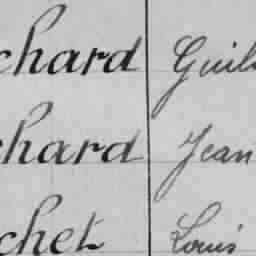 chard Guil
chard Jean
chet Louis